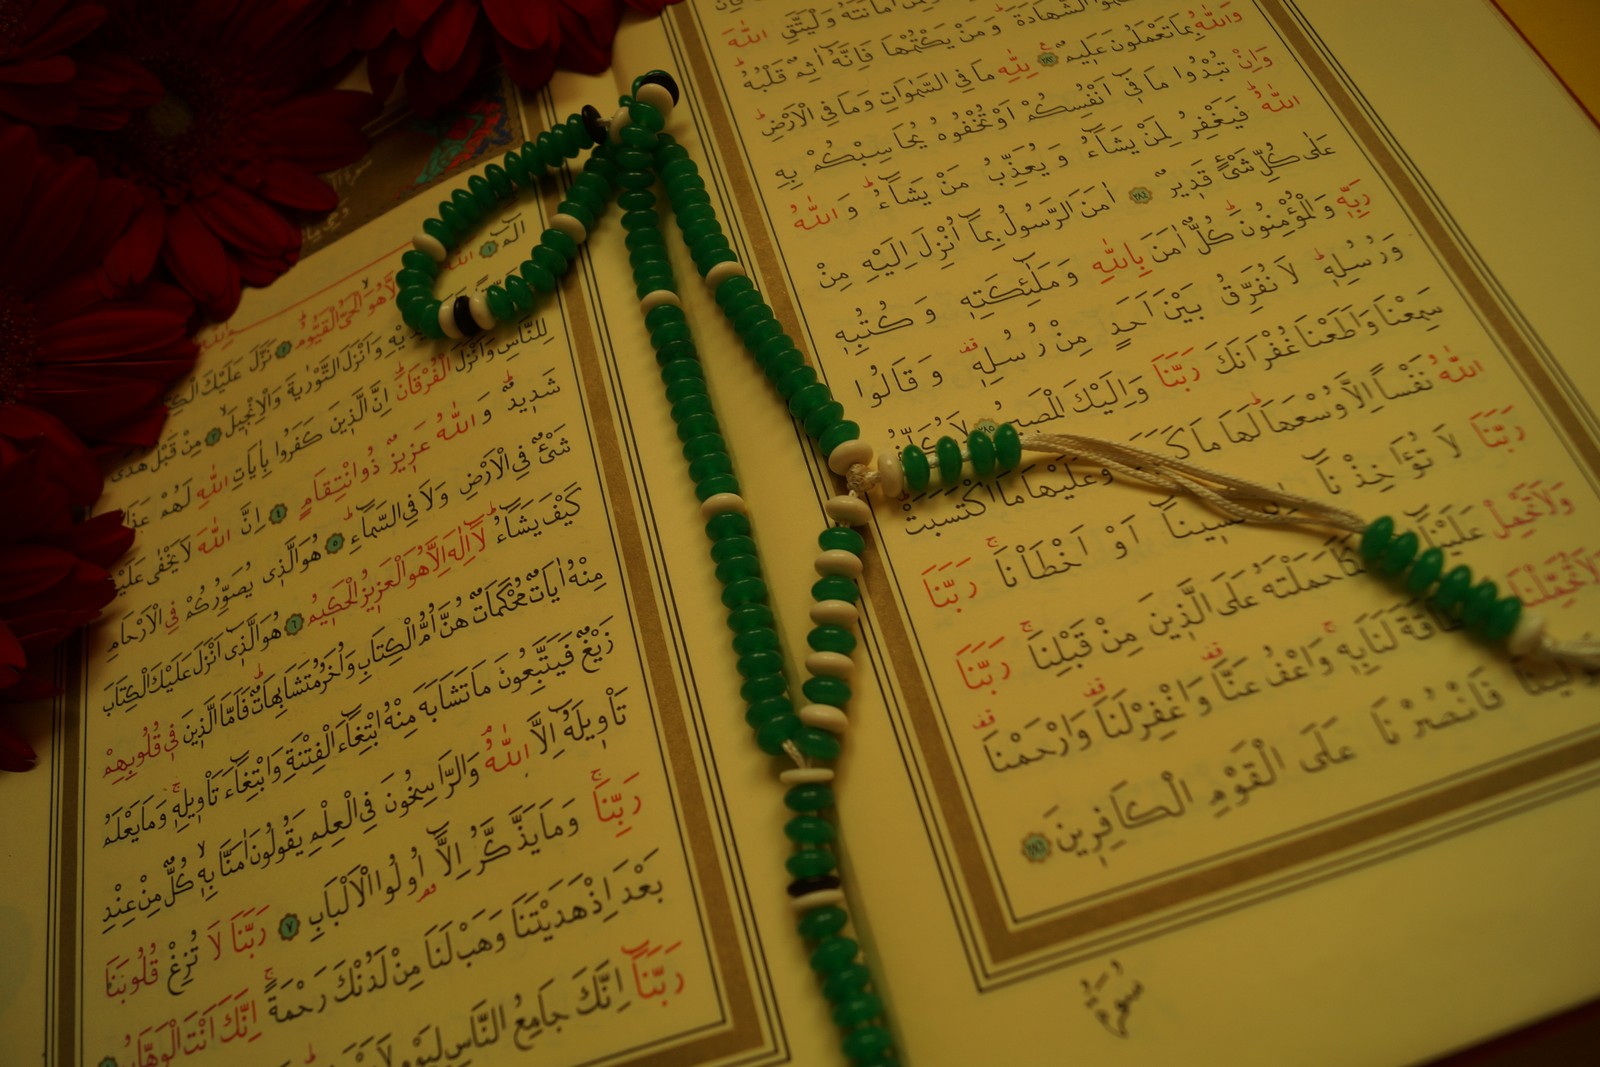 اَمَانَتَهُ وَلْيَتَّقِ اللّٰهَ
الشَّهَادَةَ وَمَنْ يَكْتُمْهَا فَاِنَّهُٓ اٰثِمٌ قَلْبُهُ
وَاللّٰهُ بِمَا تَعْمَلُونَ عَلِيمٌ ٢٨٣ لِلّٰهِ مَا فِي السَّمٰوَاتِ وَمَا فِي الْاَرْضِ
وَاِنْ تُبْدُوا مَا فِٓي اَنْفُسِكُمْ اَوْ تُخْفُوهُ يُحَاسِبْكُمْ بِهِ
اللّٰهُ فَيَغْفِرُ لِمَنْ يَشَٓاءُ وَيُعَذِّبُ مَنْ يَشَٓاءُ وَاللّٰهُ
عَلٰى كُلِّ شَيْءٍ قَدِيرٌ ٢٨٤ اٰمَنَ الرَّسُولُ بِمَٓا اُنْزِلَ اِلَيْهِ مِنْ
رَبِّهِ وَالْمُؤْمِنُونَ كُلٌّ اٰمَنَ بِاللّٰهِ وَمَلٰٓئِكَتِهِ وَكُتُبِهِ
وَرُسُلِهِ لَا نُفَرِّقُ بَيْنَ اَحَدٍ مِنْ رُسُلِهِ وَقَالُوا
سَمِعْنَا وَاَطَعْنَا غُفْرَانَكَ رَبَّنَا وَاِلَيْكَ الْمَصِيرُ ٢٨٥ لَا يُكَلِّفُ
اللّٰهُ نَفْساً اِلَّا وُسْعَهَا لَهَا مَا كَسَبَتْ وَعَلَيْهَا مَا اكْتَسَبَتْ
رَبَّنَا لَا تُؤَاخِذْنَٓا اِنْ نَسِينَٓا اَوْ اَخْطَأْنَا رَبَّنَا
وَلَا تَحْمِلْ عَلَيْنَٓا كَمَا حَمَلْتَهُ عَلَى الَّذِينَ مِنْ قَبْلِنَا رَبَّنَا
وَلَا تُحَمِّلْنَا طَاقَةَ لَنَا بِهِ وَاعْفُ عَنَّا وَاغْفِرْ لَنَا وَارْحَمْنَا
مَوْلٰينَا فَانْصُرْنَا عَلَى الْقَوْمِ الْكَافِرِينَ ٢٨٦
الٓمٓ ١ اَللّٰهُ
لَٓا هُوَ الْحَيُّ الْقَيُّومُ ٢ نَزَّلَ عَلَيْكَ
يَدَيْهِ وَاَنْزَلَ التَّوْرٰيةَ وَالْاِنْجِيلَ ٣ مِنْ قَبْلُ هُدًى
لِلنَّاسِ وَاَنْزَلَ الْفُرْقَانَ اِنَّ الَّذِينَ كَفَرُوا بِاٰيَاتِ اللّٰهِ لَهُمْ عَذَابٌ
شَدِيدٌ وَاللّٰهُ عَزِيزٌ ذُو انْتِقَامٍ ٤ اِنَّ اللّٰهَ لَا يَخْفٰى عَلَيْهِ
شَيْءٌ فِي الْاَرْضِ وَلَا فِي السَّمَٓاءِ ٥ هُوَ الَّذِي يُصَوِّرُكُمْ فِي الْاَرْحَامِ
كَيْفَ يَشَٓاءُ لَٓا اِلٰهَ اِلَّا هُوَ الْعَزِيزُ الْحَكِيمُ ٦ هُوَ الَّذِٓي اَنْزَلَ عَلَيْكَ الْكِتَابَ
مِنْهُ اٰيَاتٌ مُحْكَمَاتٌ هُنَّ اُمُّ الْكِتَابِ وَاُخَرُ مُتَشَابِهَاتٌ فَاَمَّا الَّذِينَ فِي قُلُوبِهِمْ
زَيْغٌ فَيَتَّبِعُونَ مَا تَشَابَهَ مِنْهُ ابْتِغَٓاءَ الْفِتْنَةِ وَابْتِغَٓاءَ تَأْوِيلِهِ وَمَا يَعْلَمُ
تَأْوِيلَهُٓ اِلَّا اللّٰهُ وَالرَّاسِخُونَ فِي الْعِلْمِ يَقُولُونَ اٰمَنَّا بِهِ كُلٌّ مِنْ عِنْدِ
رَبِّنَا وَمَا يَذَّكَّرُ اِلَّٓا اُولُوا الْاَلْبَابِ ٧ رَبَّنَا لَا تُزِغْ قُلُوبَنَا
بَعْدَ اِذْ هَدَيْتَنَا وَهَبْ لَنَا مِنْ لَدُنْكَ رَحْمَةً اِنَّكَ اَنْتَ الْوَهَّابُ
رَبَّنَٓا اِنَّكَ جَامِعُ النَّاسِ لِيَوْمٍ لَا رَيْبَ